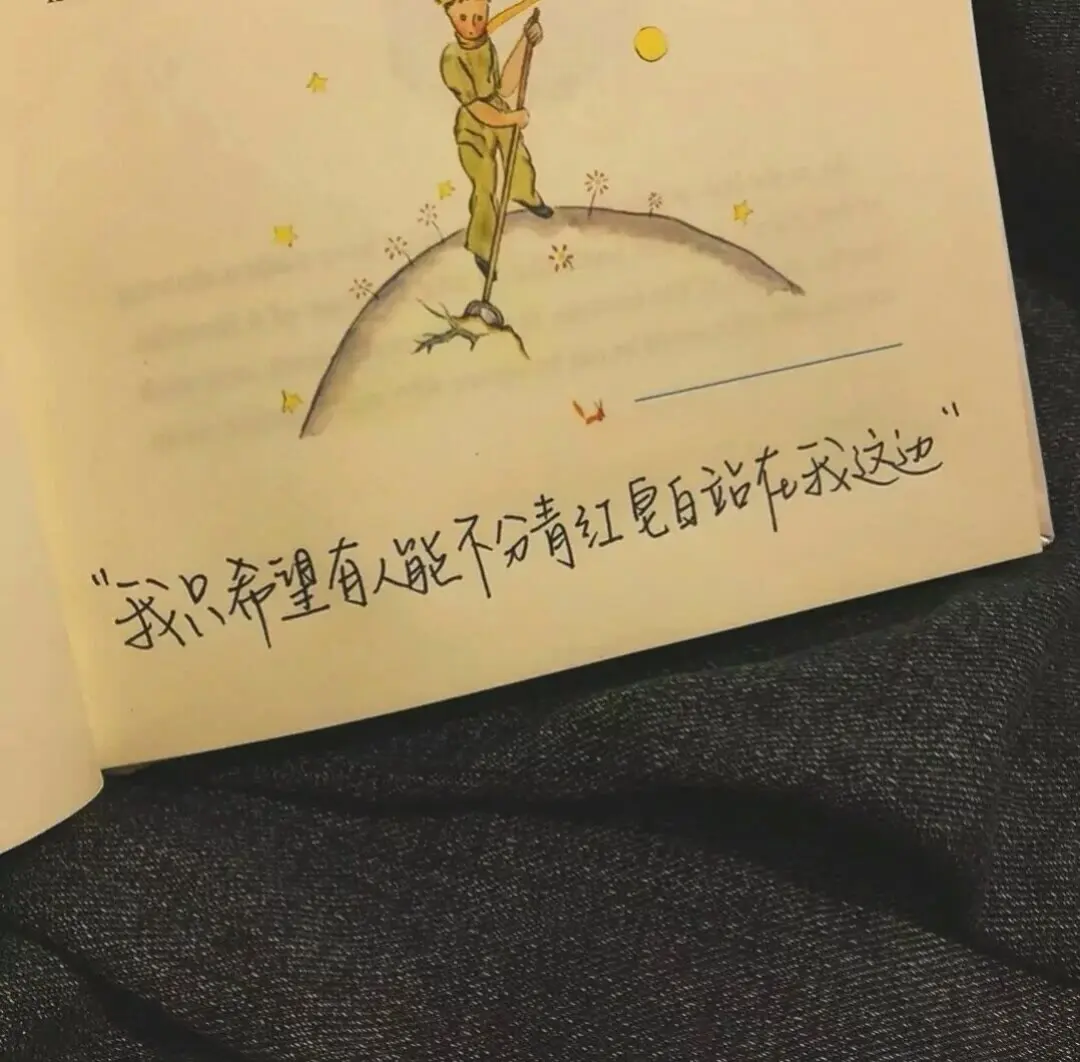 “我只希望有人能不分青红皂白站在我这边”